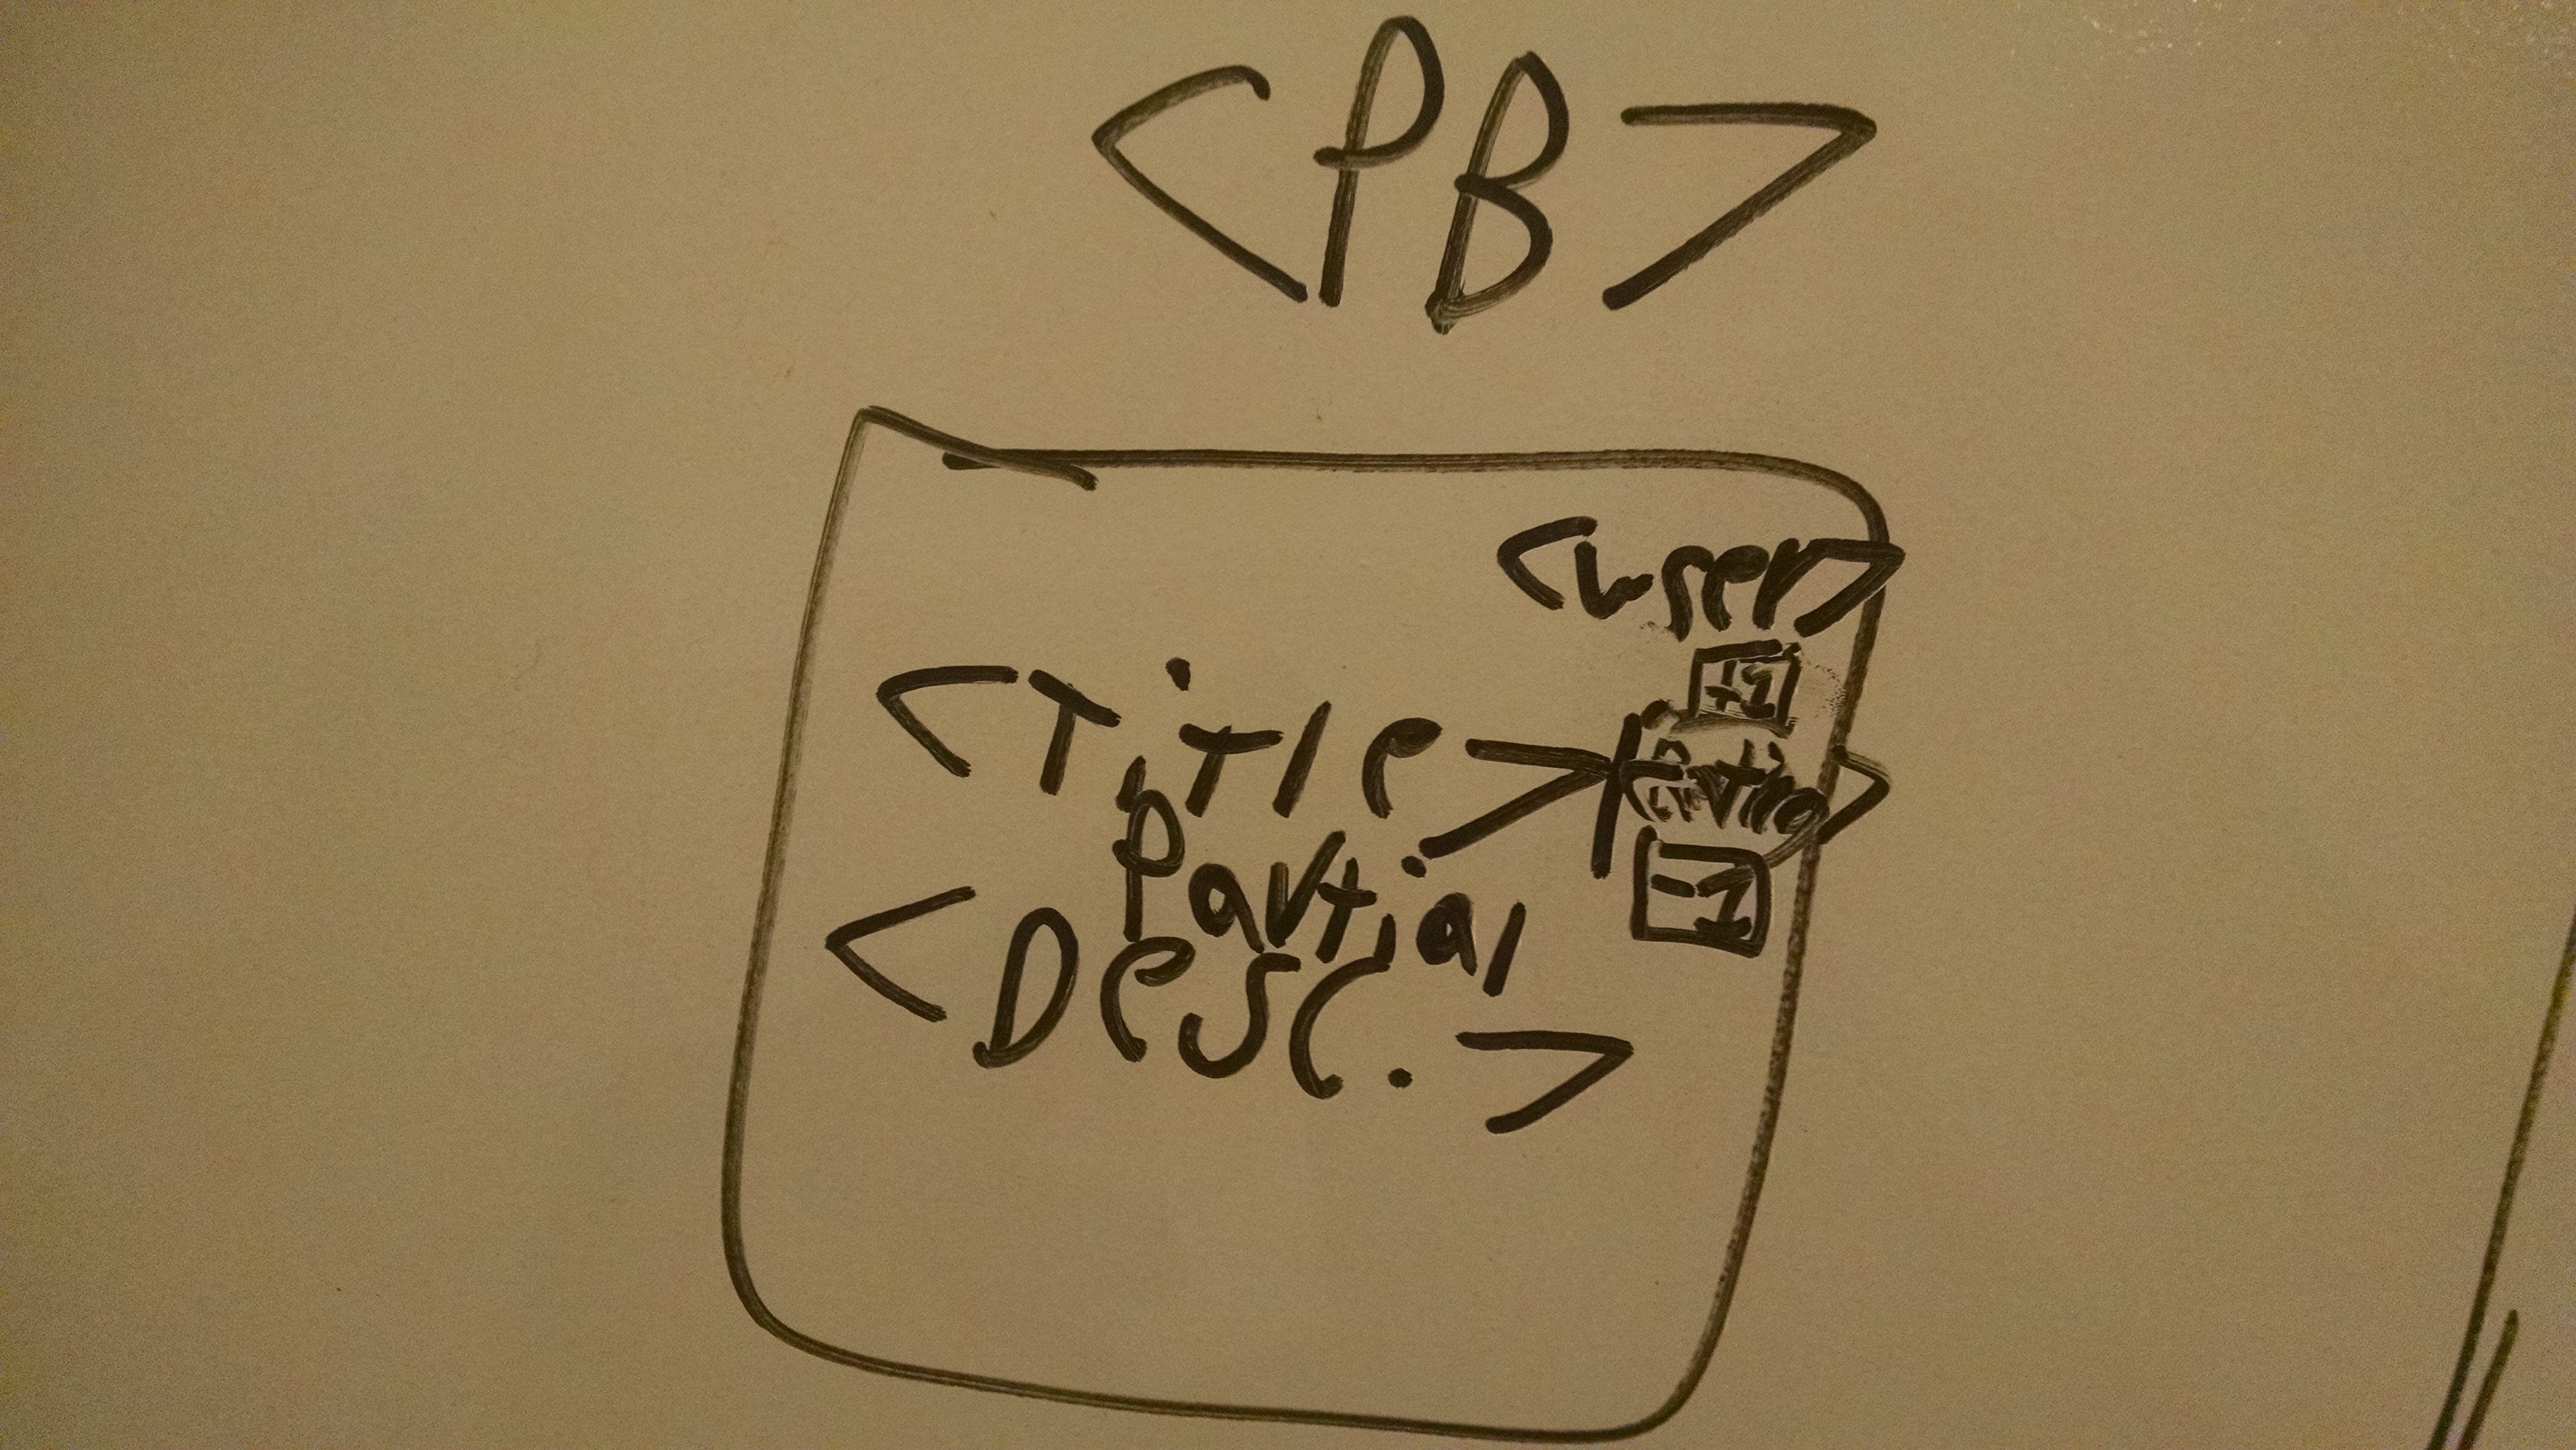 <PB>
<user>
+1
<Title>
<Rating>
-1
Partial
<Desc.>